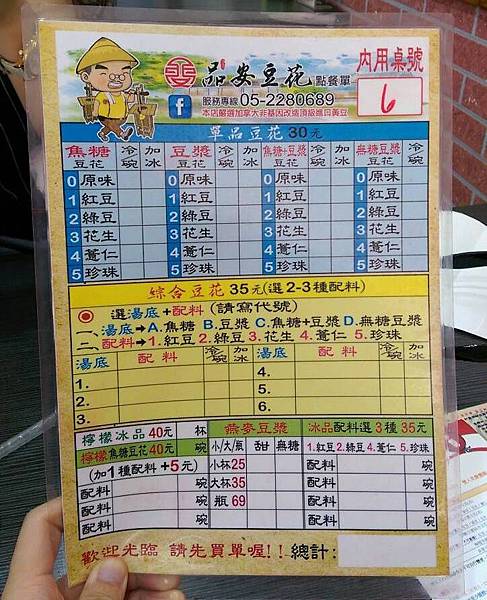 品安豆花 點餐單
內用桌號
6
服務專線 05-2280689
本店嚴選加拿大非基因改造頂級進口黃豆
單品豆花 30元
焦糖豆花 冷碗 加冰 豆漿豆花 冷碗 加冰 焦糖+豆漿豆花 冷碗 加冰 無糖豆漿豆花 冷碗 加冰
0 原味 0 原味 0 原味 0 原味
1 紅豆 1 紅豆 1 紅豆 1 紅豆
2 綠豆 2 綠豆 2 綠豆 2 綠豆
3 花生 3 花生 3 花生 3 花生
4 薏仁 4 薏仁 4 薏仁 4 薏仁
5 珍珠 5 珍珠 5 珍珠 5 珍珠
綜合豆花 35元(選2-3種配料)
選湯底+配料 (請寫代號)
一、湯底→A.焦糖 B.豆漿 C.焦糖+豆漿 D.無糖豆漿
二、配料→1.紅豆 2.綠豆 3.花生 4.薏仁 5.珍珠
湯底 配料 冷碗 加冰 湯底 配料 冷碗 加冰
1. 4.
2. 5.
3. 6.
檸檬冰品40元 杯 燕麥豆漿 冰品配料選3種 35元
檸檬焦糖豆花40元 碗 小/大/瓶 甜 無糖 1.紅豆 2.綠豆 4.薏仁 5.珍珠
(加1種配料+5元) 小杯25 配料 碗
配料 碗 大杯35 配料 碗
配料 碗 瓶 69 配料 碗
配料 碗 配料 碗
歡迎光臨 請先買單喔!! 總計: